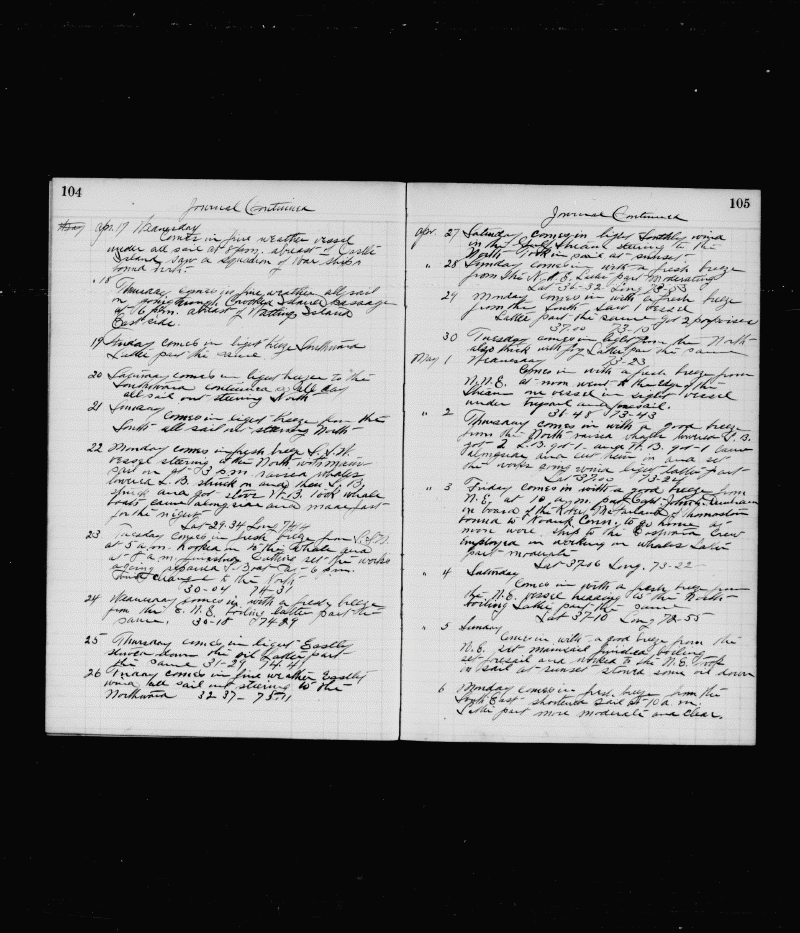 104
Journal Continued
Apr. 17 Wednesday
Comes in fine weather vessel
under all sail at 5 p.m. abreast of Castle
Island saw a squadron of war ships
bound north
" 18
Thursday comes in fine weather all sail
on going through Crooked Island Passage
at 6 p.m. abreast of Watling Island
East side.
19 Friday comes in light breeze Southward
Latter part the same
20 Saturday comes in light breeze to the
Southward continued so all day
all sail out steering North
21 Sunday
comes in light breeze from the
South all sail out steering North
22 Monday comes in fresh breeze S.S.W.
vessel steering to the North with main
sail on at 3 p.m. raised whales
lowered L.B. struck and S.B.
struck and got stove W.B. took whale
boats came alongside and made fast
for the night
Lat 29.34 Long 74.14
23 Tuesday comes in fresh breeze from S.S.W.
at 5 a.m. hooked on to the whale and
at 8 a.m. finished cutting set the works
agoing repaired S. Boat at 6 p.m.
wind changed to the North
30-04 74-31
24 Wednesday comes in with a fresh breeze
from the E.N.E. boiling latter part the
same. 30-18 74-29
25 Thursday comes in light Eastly
stowed down the oil Latter part
the same 31-29 74.41
26 Friday comes in fine weather Eastly
wind all sail out steering to the
Northward 32 37- 75-11
105
Journal Continued
Apr. 27 Saturday comes in light Southly wind
in the Gulf Stream steering to the
North Took in sail at sunset
" 28 Sunday comes in with a fresh breeze
from the N.E. Later part moderating
Lat 36-32 Long 73-53
29 Monday comes in with a fresh breeze
from the South Saw 1 vessel
Latter part the same got 2 porpoises
37.00 73-10
30 Tuesday comes in light from the North
also thick with fog Latter part the same
May 1 Wednesday 73-23
Comes in with a fresh breeze from
N.N.E. at noon went to the edge of the
Stream one vessel in sight vessel
under foresail
38-48 73-43
" 2
Thursday comes in with a good breeze
from the North raised whales lowered S.B.
got 2 L.B. got 1 and W.B. got 1 Came
alongside and cut them in and set
the works going wind light latter part
Lat 37.00 73-24
" 3 Friday comes in with a good breeze from
N.E. at 10 a.m. put Capt. John
on board of the of Thomaston
bound to Conn. to go home at
noon wore ship to the Eastward Crew
employed in working on whales Latter
part moderate
Lat 37.06 Long. 73-22
" 4 Saturday
Comes in with a fresh breeze from
the N.E. vessel heading to the North
boiling Latter part the same
Lat 37-10 Long 72-55
" 5 Sunday
Comes in with a good breeze from the
N.E. set mainsail finished boiling
set foresail and worked to the N.E. Took
in sail at sunset stowed some oil down
6 Monday comes in fresh breeze from the
South East shortened sail at 10 a.m.
Latter part more moderate and clear.